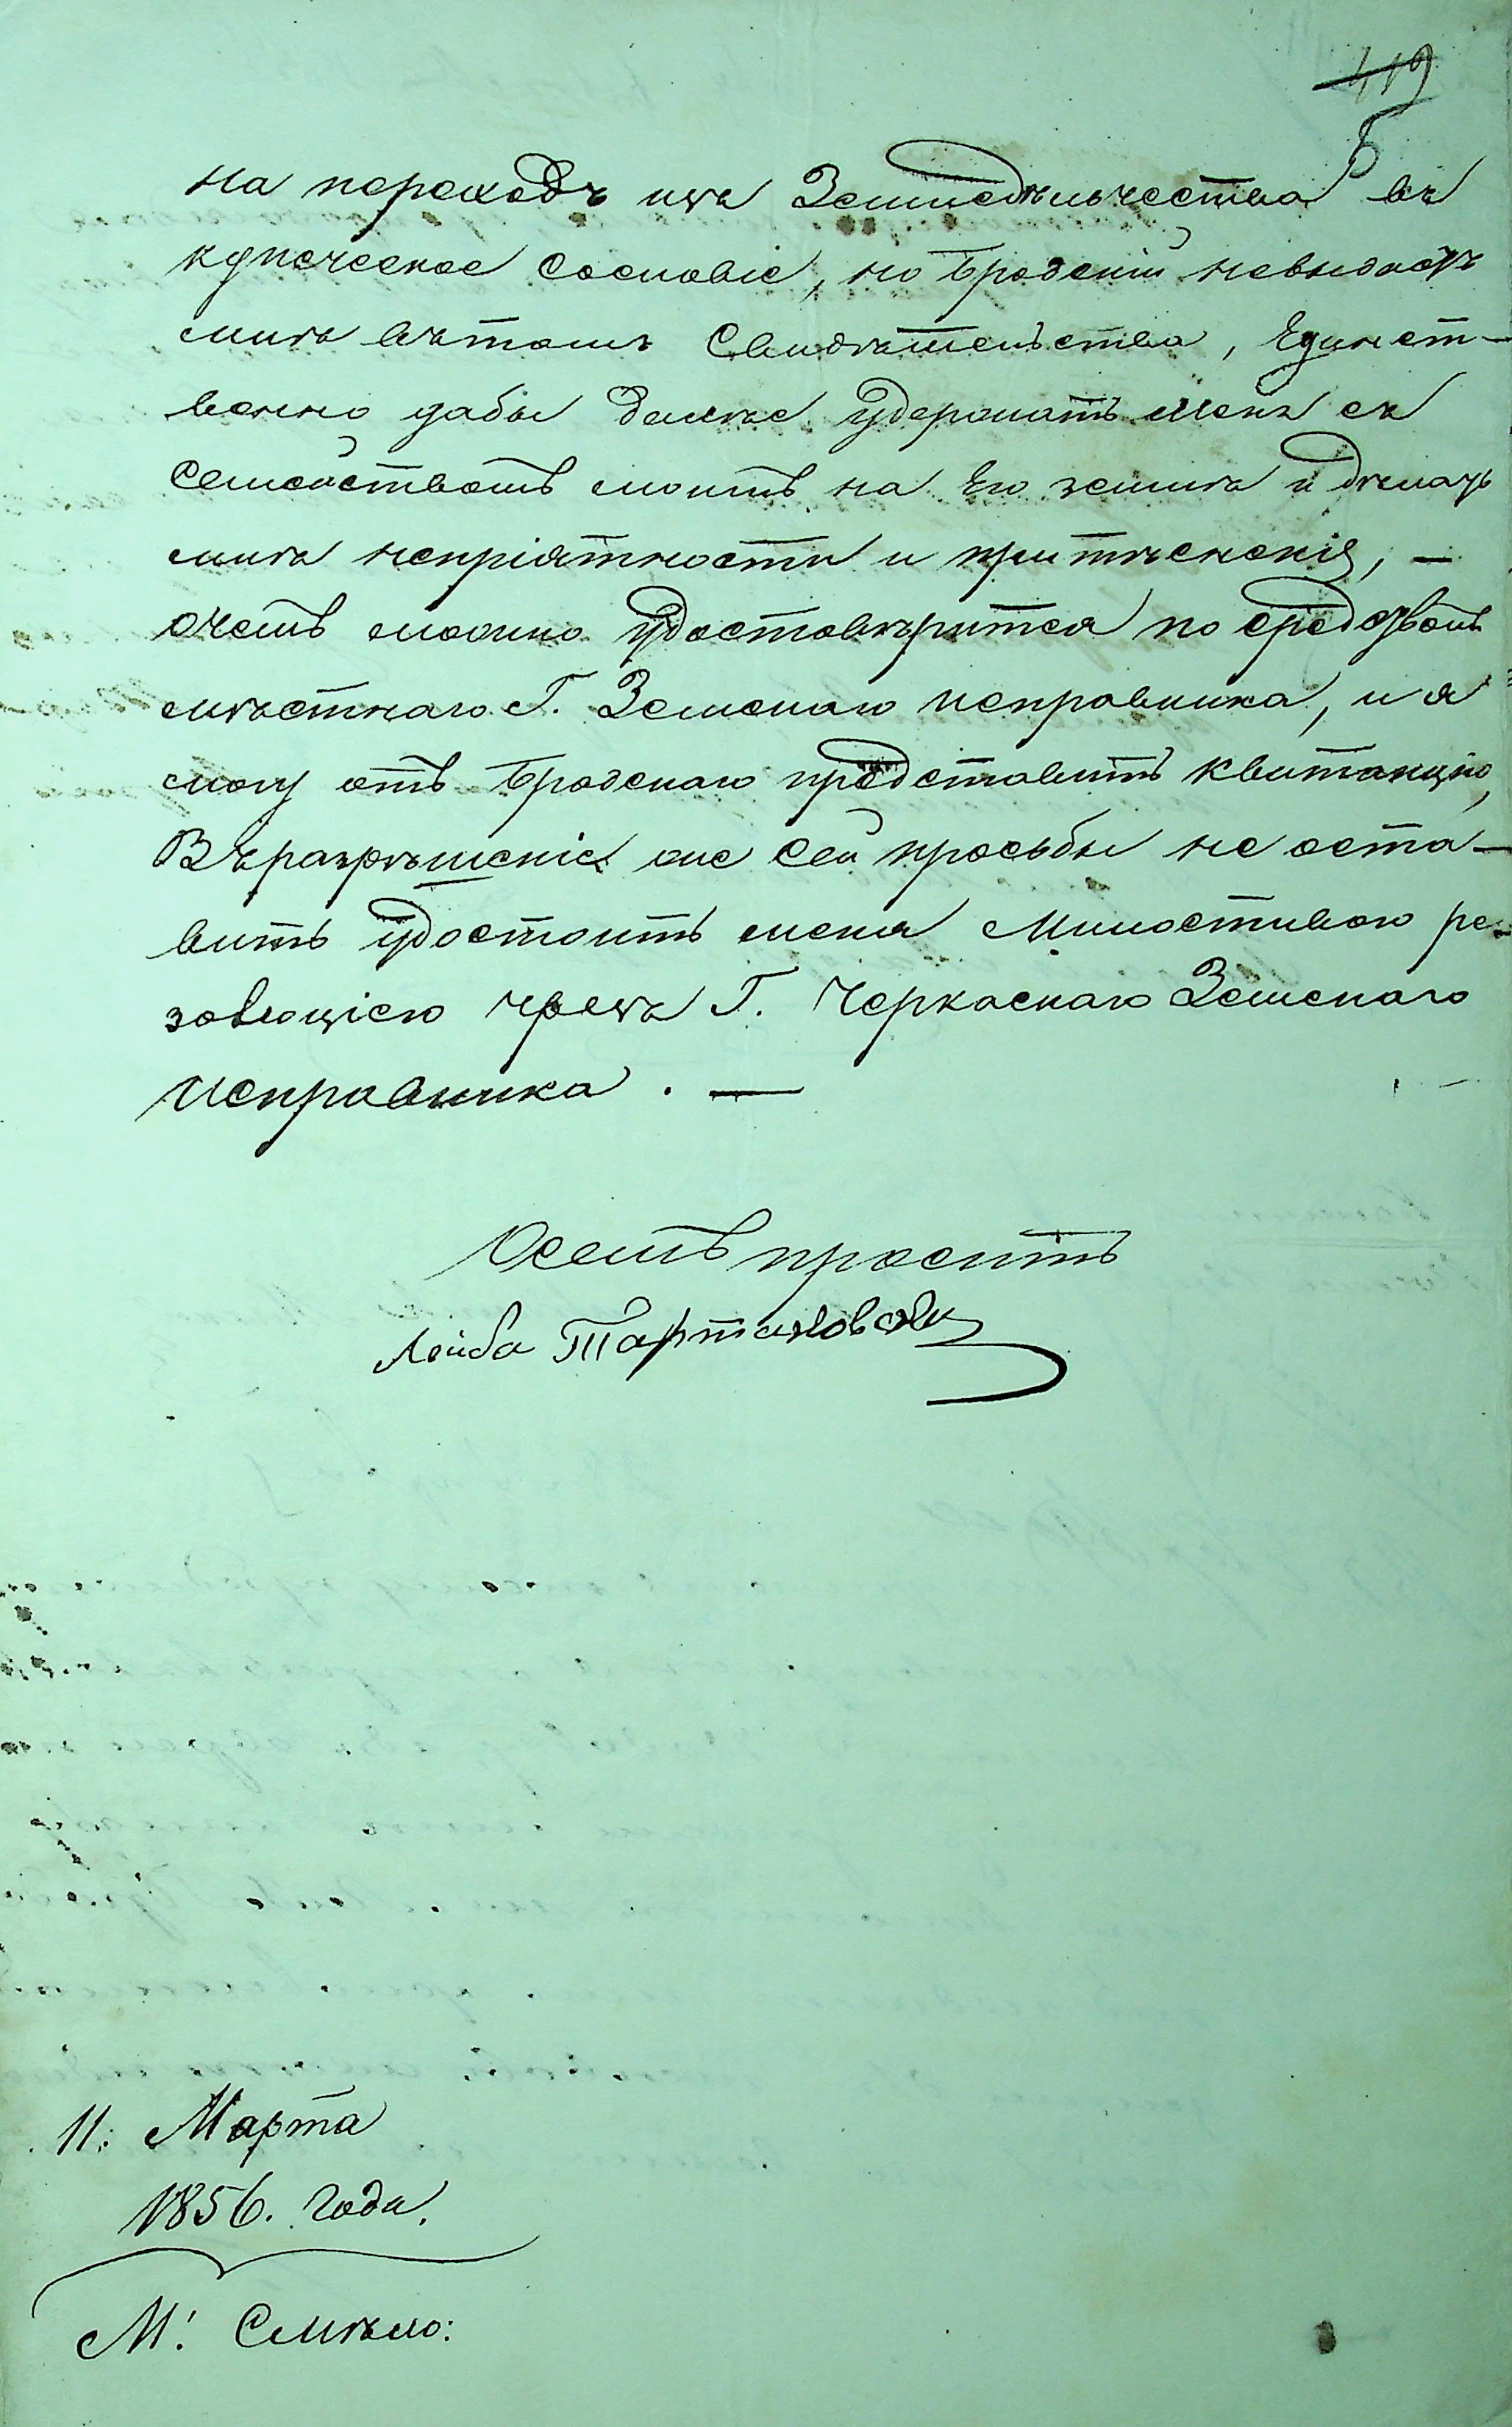 419
5
на переходъ изъ Земледѣльчества въ
купеческое сословіе, но Бродскій невыдаетъ
мнѣ вътомъ свидѣтельства, Единст-
венно дабы далѣе удержать меня съ
семействомъ моимъ на Его землѣ и дѣлать
мнѣ непріятности и притѣсненія, —
очемъ можно удостовѣрится по средствомъ
мѣстнаго Г. Земскаго исправника, и я
могу отъ Бродскаго представить квитанцію,
Въразрѣшеніе же сей просьбы не оста-
вить удостоить меня Милостивою ре-
золюціею чрезъ Г. Черкаскаго Земскаго
Исправника. —
Осемъ проситъ
Лейба Тартаковски
11: Марта
1856. года.
М: Смѣло: